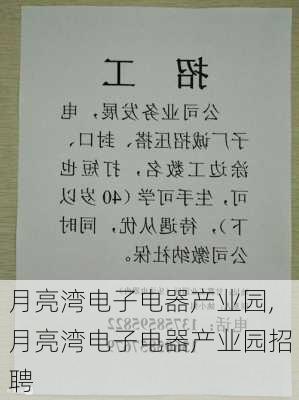 招工
公司业务发展，电
子厂诚招压搭、封口、
涂边工数名，打短也
可，生手可学（40岁以
下），待遇从优，同时
公司缴纳社保。
电话：
月亮湾电子电器产业园,
月亮湾电子电器产业园招
聘